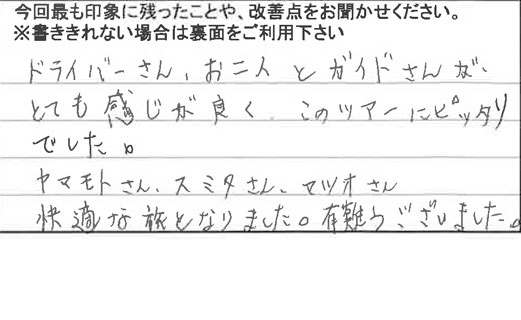 今回最も印象に残ったことや、改善点をお聞かせください。
※書ききれない場合は裏面をご利用下さい
ドライバーさん、お二人とガイドさんが、
とても感じが良く、このツアーにピッタリ
でした。
ヤマモトさん、スミタさん、マツオさん
快適な旅となりました。有難うございました。